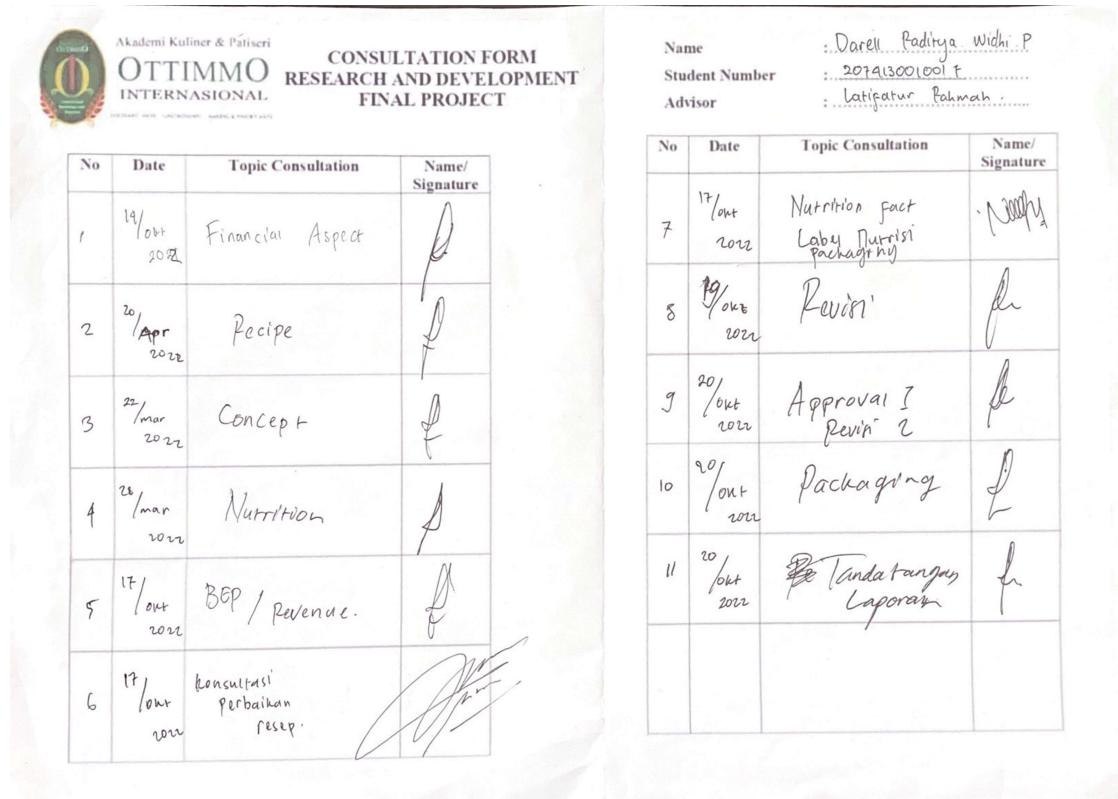 Akademi Kuliner & Patiseri
OTTIMMO
INTERNASIONAL
CONSULTATION FORM
RESEARCH AND DEVELOPMENT
FINAL PROJECT
No Date Topic Consultation Name/
Signature
1 19/okt 2022 Financial Aspect
2 20/Apr 2022 Recipe
3 22/mar 2022 Concept
4 28/mar 2022 Nutrition
5 17/okt 2022 BEP / Revenue.
6 17/okt 2022 Konsultasi
perbaikan
resep.
Name : Darell Raditya Widhi P
Student Number : 2074130010017
Advisor : Latifatur Rahmah.
No Date Topic Consultation Name/
Signature
7 17/okt 2022 Nutrition fact
Packaging
8 19/okt 2022 Revisi
9 20/okt 2022 Approval I
Revisi 2
10 20/okt 2022 Packaging
11 20/okt 2022 Tandatangan
Laporan